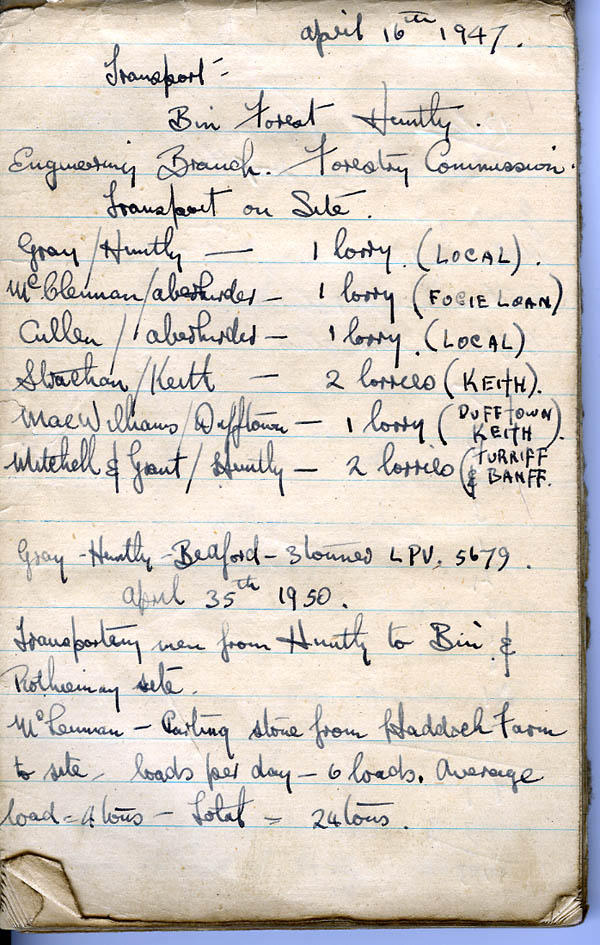 April 16th 1947.
Transport-
Bin Forest Huntly.
Engineering Branch. Forestry Commission.
Transport on Site.
Gray/Huntly — 1 lorry. (LOCAL).
McClennan/aberhirder - 1 lorry (FOGIE LOAN)
Cullen/aberhirder - 1 lorry. (LOCAL)
Strathan/Keith - 2 lorries (KEITH).
MacWilliams/Dufftown - 1 lorry (DUFFTOWN KEITH).
Mitchell & Grant/Huntly - 2 lorries (TURRIFF & BANFF.
Gray - Huntly - Bedford - 3 tonned LPV. 5679.
April 35th 1950.
Transporting men from Huntly to Bin &
Rothiemay site.
McLennan - Carting stone from Haddoch Farm
to site - loads per day - 6 loads. Average
load = 4 tons - Total = 24 tons.